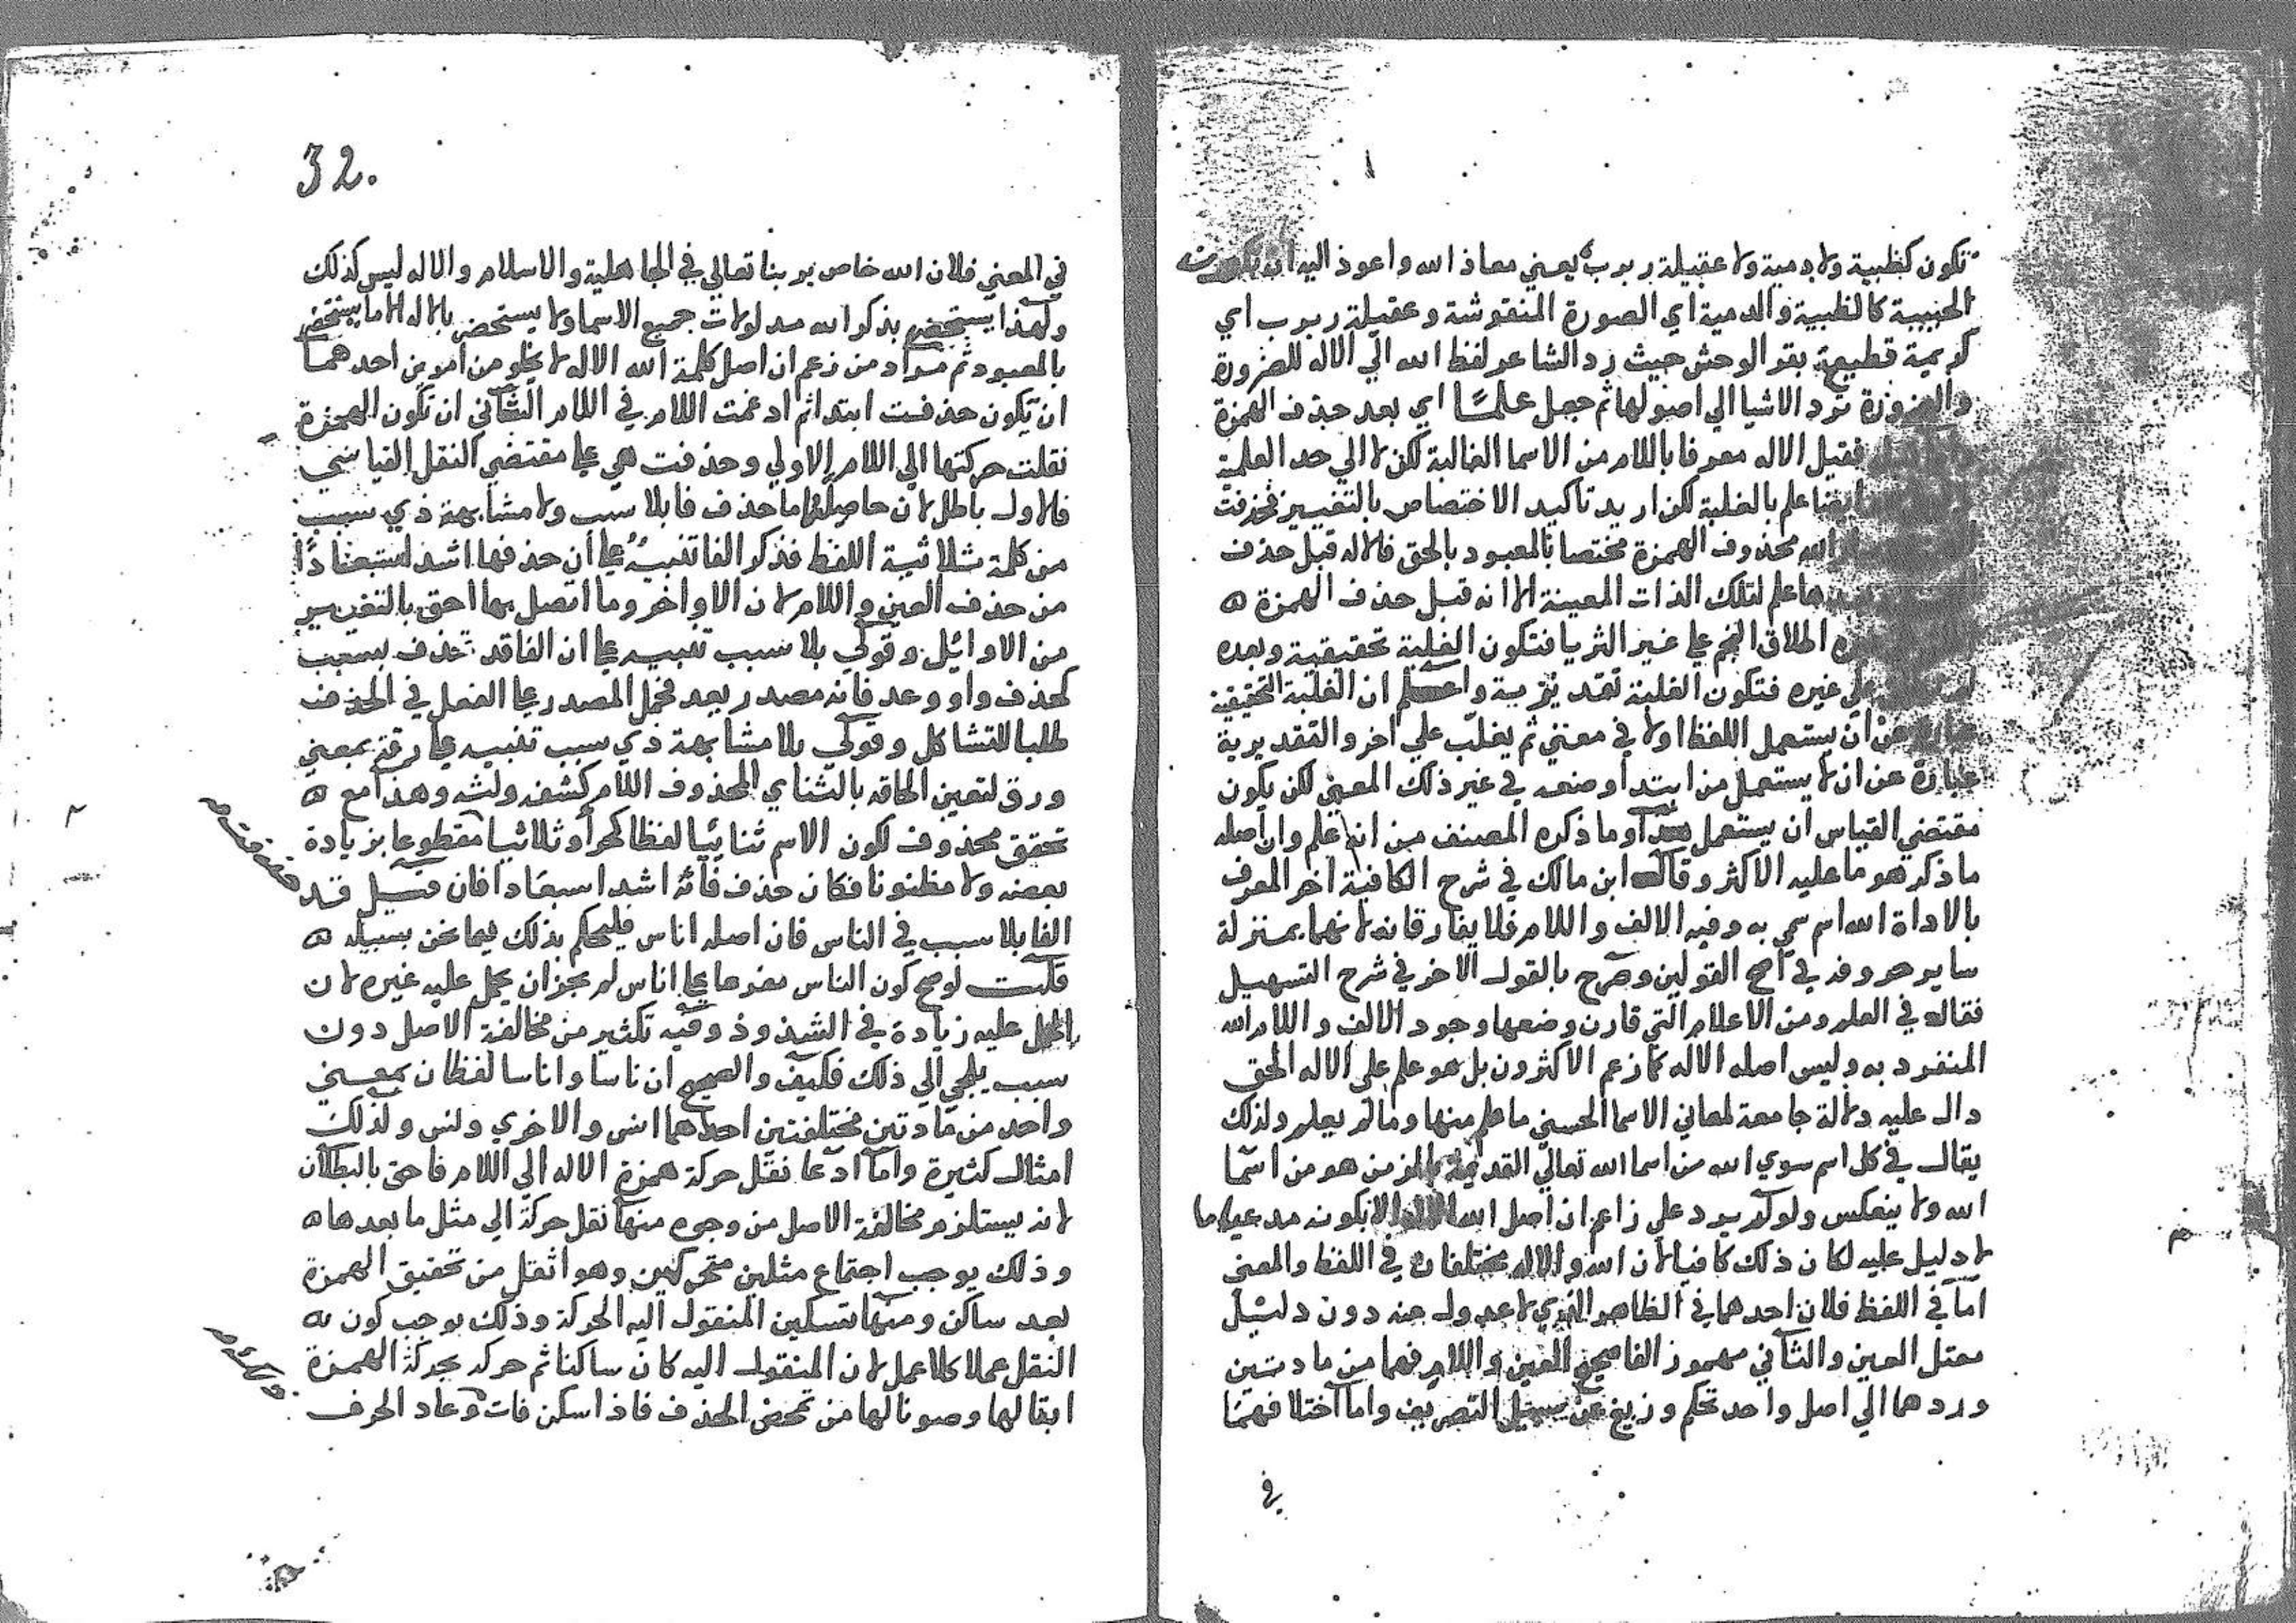 تكون كظبية ولا دمية ولا عقيلة ربرب يعني معاذ الله واعوذ اليه ان تكون
الحبيبة كالظبية والدمية اي الصورة المنقوشة وعقيلة ربرب اي
كريمة قطيعة بقر الوحش حيث رد الشاعر لفظ الله الي الاله للضرورة
والضرورة ترد الاشيا الي اصولها ثم جعل علما اي بعد حذف الهمزة
فقيل الاله معرفا باللام من الاسما الغالبة لكن لا الي حد العلمية
ايضا علم بالغلبة لكن اريد تاكيد الاختصاص بالتغيير فحذفت
الله محذوف الهمزة مختصا بالمعبود بالحق فالاله قبل حذف
ها علم لتلك الذات المعينة الا انه قبل حذف الهمزة
اطلاق النجم علي غير الثريا فتكون الغلبة تحقيقية وبعده
علي غيره فتكون الغلبة تقديرية واعلم ان الغلبة التحقيقية
عبارة عن ان يستعمل اللفظ اولا في معني ثم يغلب علي اخر والتقديرية
عبارة عن ان لا يستعمل من ابتدا وضعه في غير ذلك المعني لكن يكون
مقتضي القياس ان يستعمل وما ذكره المصنف من انه علم وان اصله
ما ذكر هو ما عليه الاكثر وقال ابن مالك في شرح الكافية اخر المعرف
بالاداة الله اسم سمي به وفيه الالف واللام فلا يفارقانه لانهما بمنزلة
ساير حروفه في اصح القولين وصرح بالقول الاخر في شرح التسهيل
فقال في العلم ومن الاعلام التي قارن وضعها وجود الالف واللام الله
المنفرد به وليس اصله الاله كما زعم الاكثرون بل هو علم علي الاله الحق
دال عليه دلالة جامعة لمعاني الاسما الحسني ما علم منها وما لم يعلم ولذلك
يقال في كل اسم سوي الله من اسما الله تعالي القديمة هو من اسما
الله ولا ينعكس ولو لم يرد علي زاعم ان اصل الله الاله الا بكونه مدعيا ما
لا دليل عليه لكان ذلك كافيا لان الله والاله مختلفان في اللفظ والمعني
اما في اللفظ فلان احدهما في الظاهر الذي لا عدول عنه دون دليل
معتل العين والثاني مهموز الفا صحيح العين واللام فهما من مادتين
وردهما الي اصل واحد تحكم وزيغ عن سبيل التصريف واما اختلافهما
في
32.
في المعني فلان الله خاص بربنا تعالي في الجاهلية والاسلام والاله ليس كذلك
ولهذا يستحضر بذكر الله مدلولات جميع الاسما ولا يستحضر بالاله الا ما يستحضر
بالمعبود ثم مراد من زعم ان اصل كلمة الله الاله لا يخلو من امرين احدهما
ان تكون حذفت ابتدا ثم ادغمت اللام في اللام الثاني ان تكون الهمزة
نقلت حركتها الي اللام الاولي وحذفت هي علي مقتضي النقل القياسي
فالاول باطل لان حاصله ما حذف فا بلا سبب ولا مشابهة ذي سبب
من كلمة ثلاثية اللفظ فذكر الفا تنبيه علي ان حذفها اشد استبعادا
من حذف العين واللام لان الاواخر وما اتصل بها احق بالتغيير
من الاوائل وقولي بلا سبب تنبيه علي ان الفا قد تحذف بسبب
كحذف واو وعد فانه مصدر يعد فحمل المصدر علي الفعل في الحذف
طلبا للتشاكل وقولي بلا مشابهة ذي سبب تنبيه علي رقة بمعني
ورق لتعين الحاقه بالثنائي المحذوف اللام كشفة ولثة وهذا مع
تحقق محذوف لكون الاسم ثنائيا لفظا كحر او ثلاثيا مقطوعا بزيادة
بعضه ولا مظنونا فكان حذف فائه اشد استبعادا فان قيل قد
حذفت
الفا بلا سبب في الناس فان اصله اناس فليحكم بذلك فيما نحن بسبيله
قلت لو صح كون الناس مفرعا علي اناس لم يجز ان يحمل عليه غيره لان
الحمل عليه زيادة في الشذوذ وفيه تكثير من مخالفة الاصل دون
سبب يلجي الي ذلك فكيف والصحيح ان ناسا واناسا لفظان بمعني
واحد من مادتين مختلفتين احداهما انس والاخري ونس ولذلك
امثال كثيرة واما ادعا نقل حركة همزة الاله الي اللام فاحق بالبطلان
لانه يستلزم مخالفة الاصل من وجوه منها نقل حركة الي مثل ما بعدها
وذلك يوجب اجتماع مثلين متحركين وهو اثقل من تحقيق الهمزة
بعد ساكن ومنها تسكين المنقول اليه الحركة وذلك يوجب كون
النقل عملا كلا عمل لان المنقول اليه كان ساكنا ثم حرك بحركة الهمزة
ابقا لها وصونا لها من تمحض الحذف فاذا سكن فات وعاد الحرف